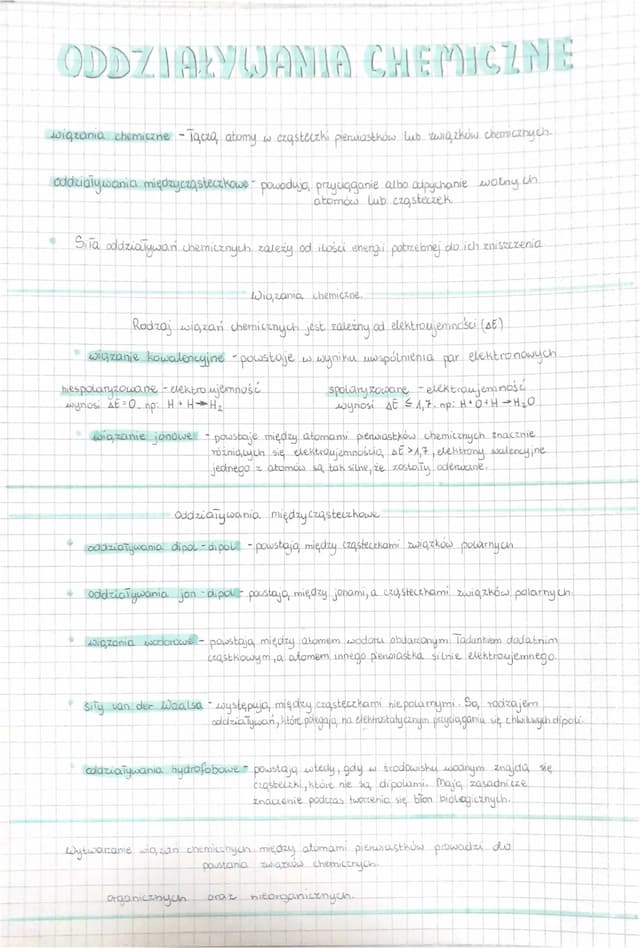 ODDZIAŁYWANIA CHEMICZNE
wiązania chemiczne - łączą atomy w cząsteczki pierwiastków lub związków chemicznych.
oddziaływania międzycząsteczkowe - powodują przyciąganie albo odpychanie wolnych
atomów lub cząsteczek
Siła oddziaływań chemicznych zależy od ilości energi potrzebnej do ich zniszczenia
Wiązania chemiczne.
Rodzaj wiązań chemicznych jest zależny od elektroujemności (ΔE)
wiązanie kowalencyjne - powstaje w wyniku uwspólnienia par elektronowych
niespolaryzowane - elektroujemność
wynosi ΔE=0. np: H + H → H₂
spolaryzowane - elektroujemność
wynosi ΔE ≤ 1,7. np: H+O+H → H₂O
wiązanie jonowe - powstaje między atomami pierwiastków chemicznych znacznie
różniących się elektroujemnością, ΔE >1,7, elektrony walencyjne
jednego z atomów są tak silne, że zostały oderwane.
oddziaływania międzycząsteczkowe
oddziaływania dipol - dipol - powstają między cząsteczkami związków polarnych
oddziaływania jon - dipol - powstają między jonami, a cząsteczkami związków polarnych
wiązania wodorowe - powstają między atomem wodoru obdarzonym ładunkiem dodatnim
cząstkowym, a atomem innego pierwiastka silnie elektroujemnego.
siły van der Waalsa - występują między cząsteczkami niepolarnymi. Są rodzajem
oddziaływań, które polegają na elektrostatycznym przyciąganiu się chwilowych dipoli
oddziaływania hydrofobowe - powstają wtedy, gdy w środowisku wodnym znajdą się
cząsteczki, które nie są dipolami. Mają zasadnicze
znaczenie podczas tworzenia się błon biologicznych.
Wytwarzanie wiązań chemicznych między atomami pierwiastków prowadzi do
powstania związków chemicznych
organicznych oraz nieorganicznych.